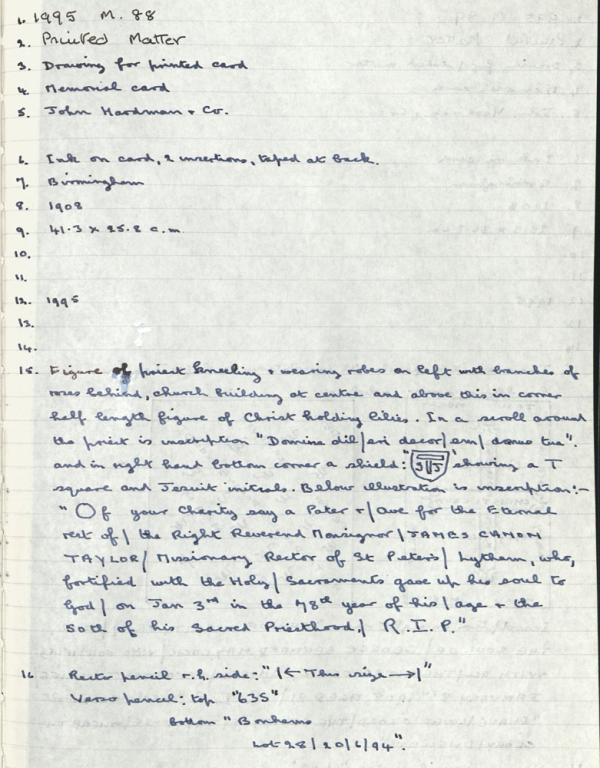 1. 1995 M. 88
2. Printed Matter
3. Drawing for printed card
4. Memorial card
5. John Hardman + Co.
6. Ink on card, 2 insertions, taped at back.
7. Birmingham
8. 1908
9. 41.3 x 25.2 c.m.
10.
11.
12. 1995
13.
14.
15. Figure of priest kneeling + wearing robes on left with branches of
roses behind, church building at centre and above this in corner
half length figure of Christ holding lilies. In a scroll around
the priest is inscription "Domine dil/exi decor/em/ domus tue".
and in right hand bottom corner a shield: "SJ" showing a T
square and Jesuit initials. Below illustration is inscription:-
"Of your Charity say a Pater +/ ave for the Eternal
rest of/ the Right Reverend Monsignor/ JAMES CANON
TAYLOR/ Missionary Rector of St Peters/ Lytham, who,
fortified with the Holy/ Sacraments gave up his soul to
God/ on Jan 3rd in the 78th year of his/ age + the
50th of his Sacred Priesthood./ R.I.P."
16. Recto pencil r.h. side: "|← This size →|"
Verso pencil: top "635"
bottom "Bonhams
Lot 28/ 20/6/94".